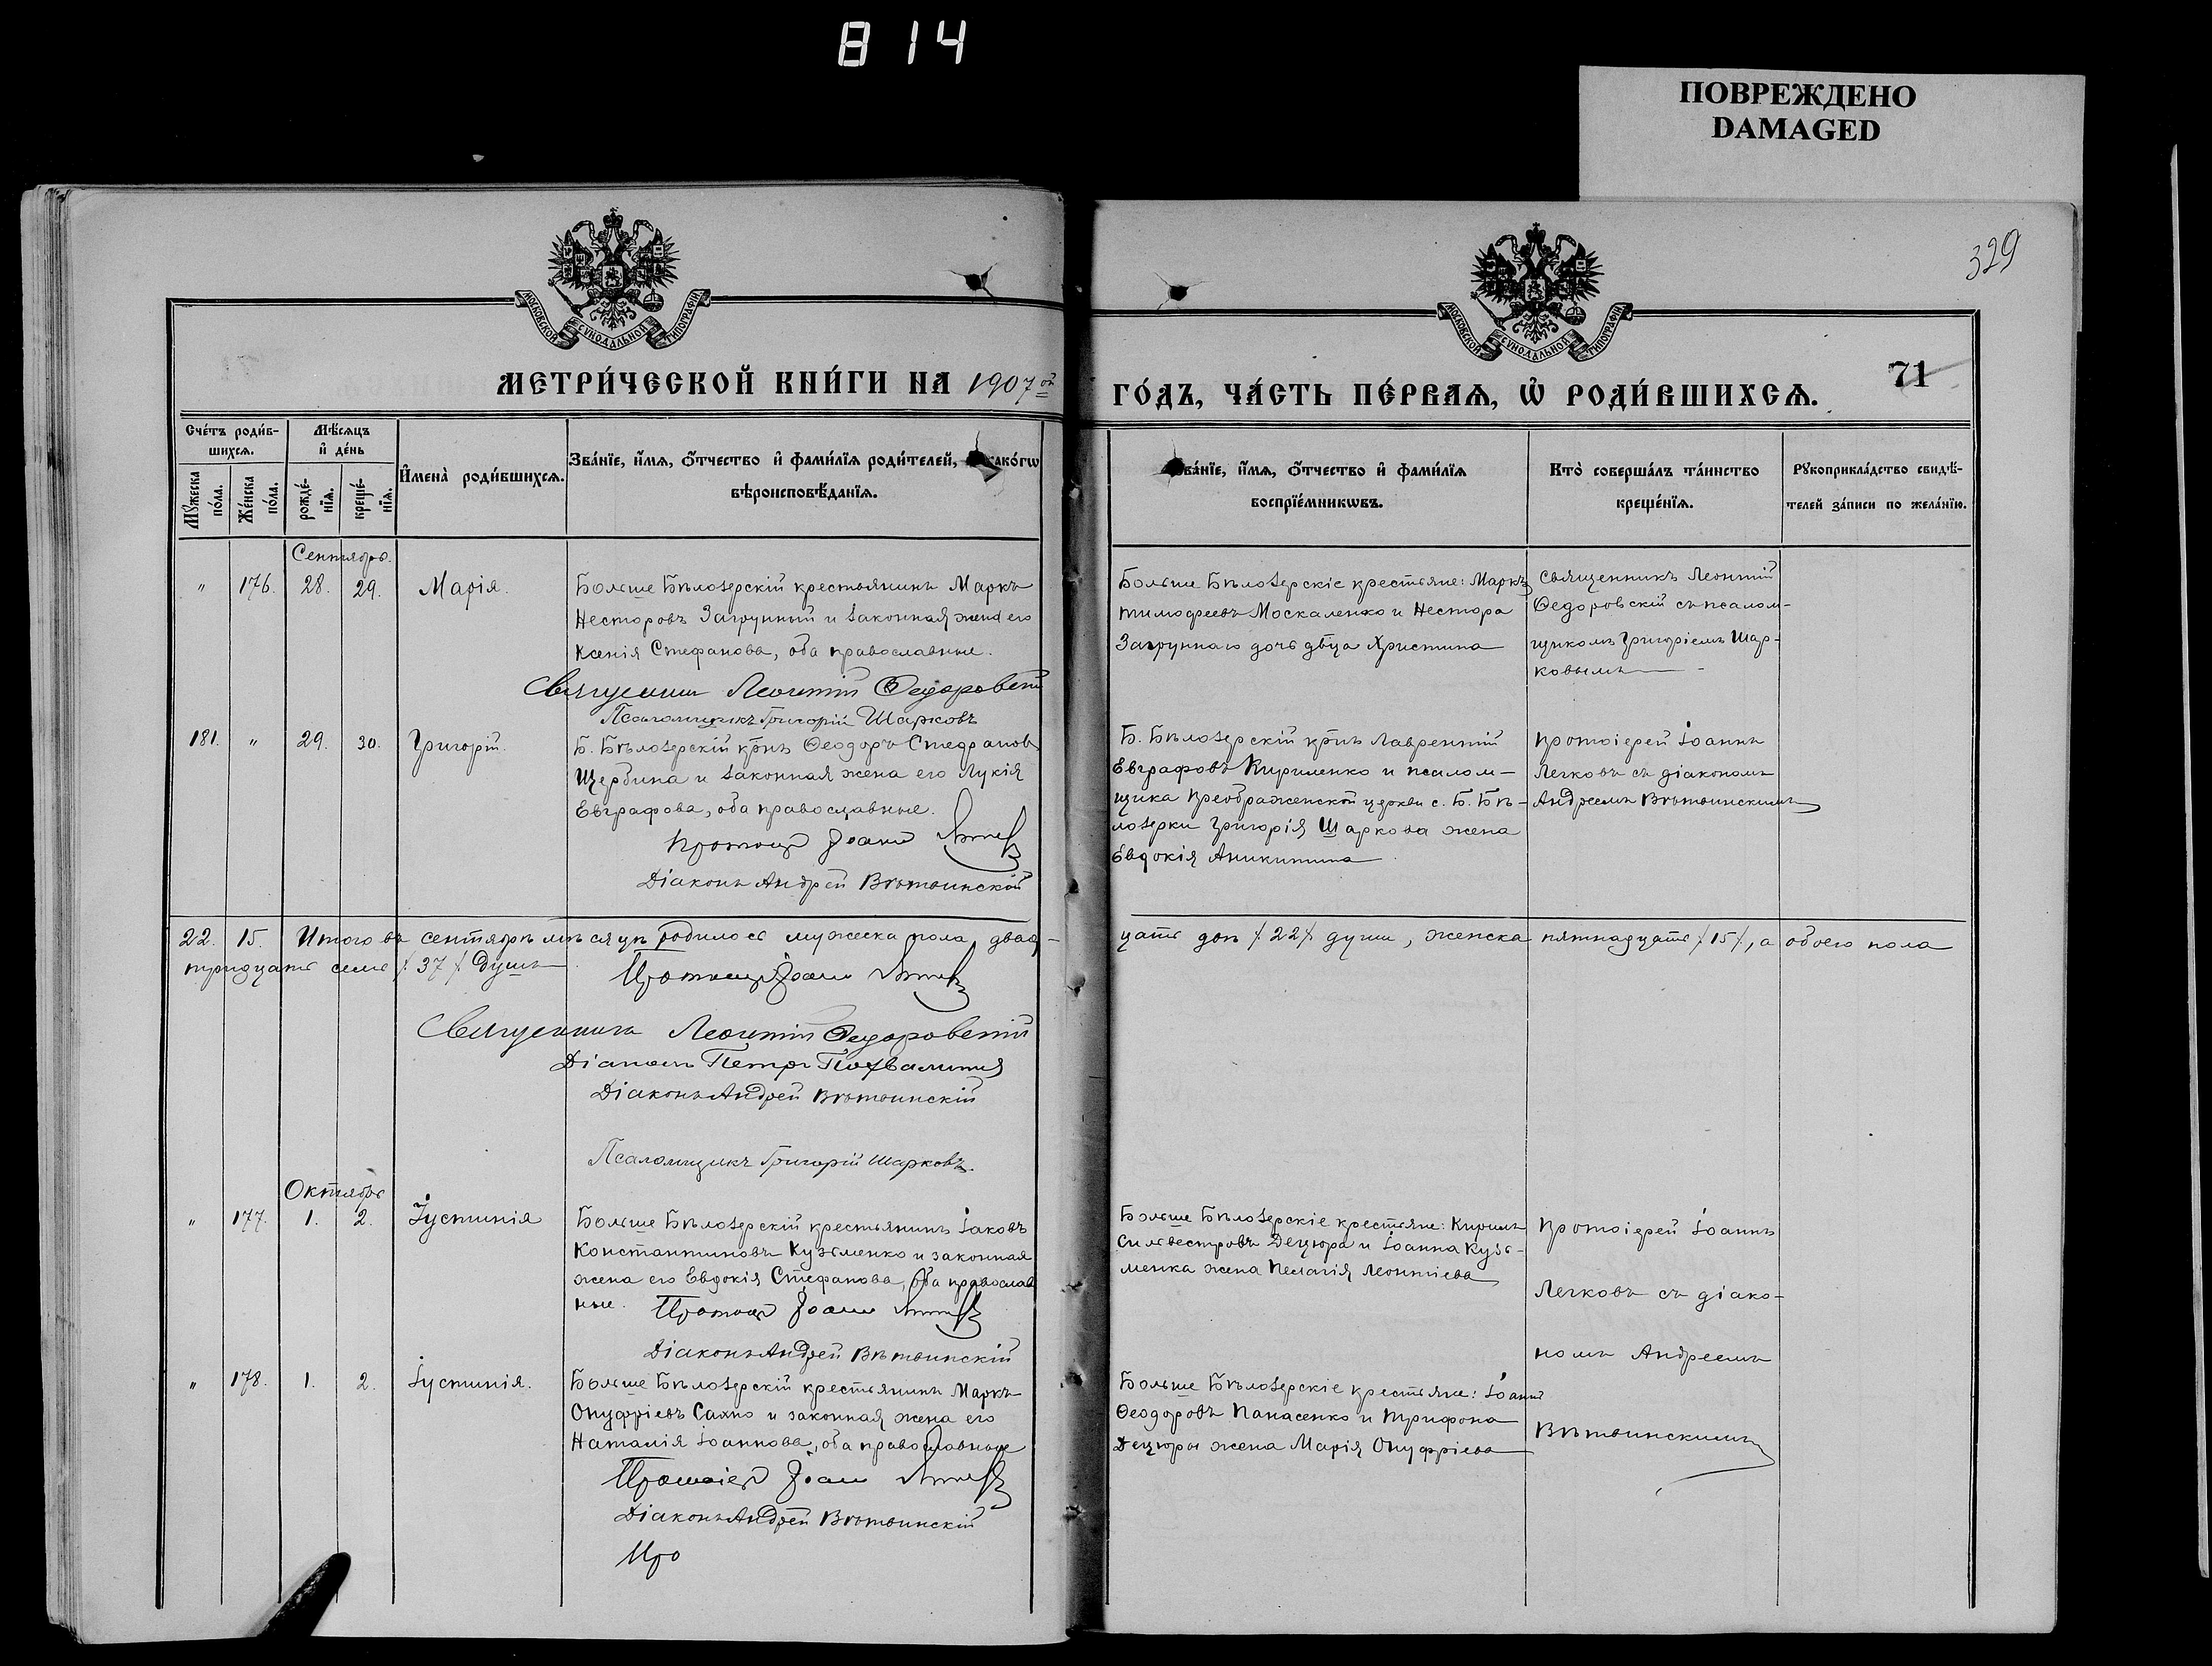 814
ПОВРЕЖДЕНО
DAMAGED
329
МОСКОВСКОЙ СѴНОДАЛЬНОЙ ТИПОГРАФІИ
МОСКОВСКОЙ СѴНОДАЛЬНОЙ ТИПОГРАФІИ
71
МЕТРИ́ЧЕСКОЙ КНИ́ГИ НА 1907 ой
ГО́ДЪ, ЧА́СТЬ ПЕ́РВАЯ, Ѡ҆ РОДИ́ВШИХСЯ.
Сче́тъ роди́в-
шихся.
Мѣ́сяцъ
и҆ де́нь
Мꙋжеска по́ла.
Же́нска по́ла.
рожде́-
нїя.
креще́-
нїя.
И҆мена̀ роди́вшихся.
Зва́нїе, и҆́мя, ѻ҆́тчество и҆ фами́лїя роди́телей, и҆ како́гѡ
вѣроисповѣ́данїя.
Зва́нїе, и҆́мя, ѻ҆́тчество и҆ фами́лїя
воспрїе́мникѡвъ.
Кто̀ соверша́лъ та́инство
креще́нїя.
Рꙋкоприкла́дство свидѣ́-
телей за́писи по жела́нїю.
Сентябрь.
" 176. 28. 29. Марія.
Больше Бѣлозерскій крестьянинъ Маркъ
Несторовъ Загрунный и законная жена его
Ксенія Стефанова, оба православные.
Священникъ Леонтій Ѳедоровскій
Псаломщикъ Григорій Шарковъ
Больше Бѣлозерскіе крестьяне: Маркъ
Тимофеевъ Москаленко и Нестора
Загруннаго дочь дѣвца Христина
Священникъ Леонтій
Ѳедоровскій съ псалом-
щикомъ Григоріемъ Шар-
ковымъ
181. " 29. 30. Григорій.
Б. Бѣлозерскій крнъ Ѳеодоръ Стефановъ
Щербина и законная жена его Лукія
Евграфова, оба православные.
Протоіер Іоаннъ Легковъ
Діаконъ Андрей Вѣтвинскій
Б. Бѣлозерскій крнъ Лаврентій
Евграфовъ Кириленко и псалом-
щика Преображенской церкви с. Б. Бѣ-
лозерки Григорія Шаркова жена
Евдокія Аникитина
Протоіерей Іоаннъ
Легковъ съ діакономъ
Андреемъ Вѣтвинскимъ
22. 15. Итого въ сентябрѣ мѣсяцѣ родилось мужеска пола двад-
цать двѣ /22/ души, женска пятнадцать /15/, а обоего пола
тридцать семь /37/ душъ.
Протоіер Іоаннъ Легковъ
Священникъ Леонтій Ѳедоровскій
Діаконъ Петръ Похвалитя
Діаконъ Андрей Вѣтвинскій
Псаломщикъ Григорій Шарковъ.
Октябрь
" 177. 1. 2. Іустинія
Больше Бѣлозерскій крестьянинъ Іаковъ
Константиновъ Кузьменко и законная
жена его Евдокія Стефанова, оба православ
ные. Протоіер Іоаннъ Легковъ
Діаконъ Андрей Вѣтвинскій
Больше Бѣлозерскіе крестьяне: Кирилъ
Сильвестровъ Децюра и Іоанна Кузь-
менка жена Пелагія Леонтіева
Протоіерей Іоаннъ
Легковъ съ діако-
номъ Андреемъ
Вѣтвинскимъ
" 178. 1. 2. Іустинія.
Больше Бѣлозерскій крестьянинъ Маркъ
Онуфріевъ Сахно и законная жена его
Наталія Іоаннова, оба православные
Протоіер Іоаннъ Легковъ
Діаконъ Андрей Вѣтвинскій
Про
Больше Бѣлозерскіе крестьяне: Іоаннъ
Ѳеодоровъ Панасенко и Трифона
Децюры жена Марія Онуфріева